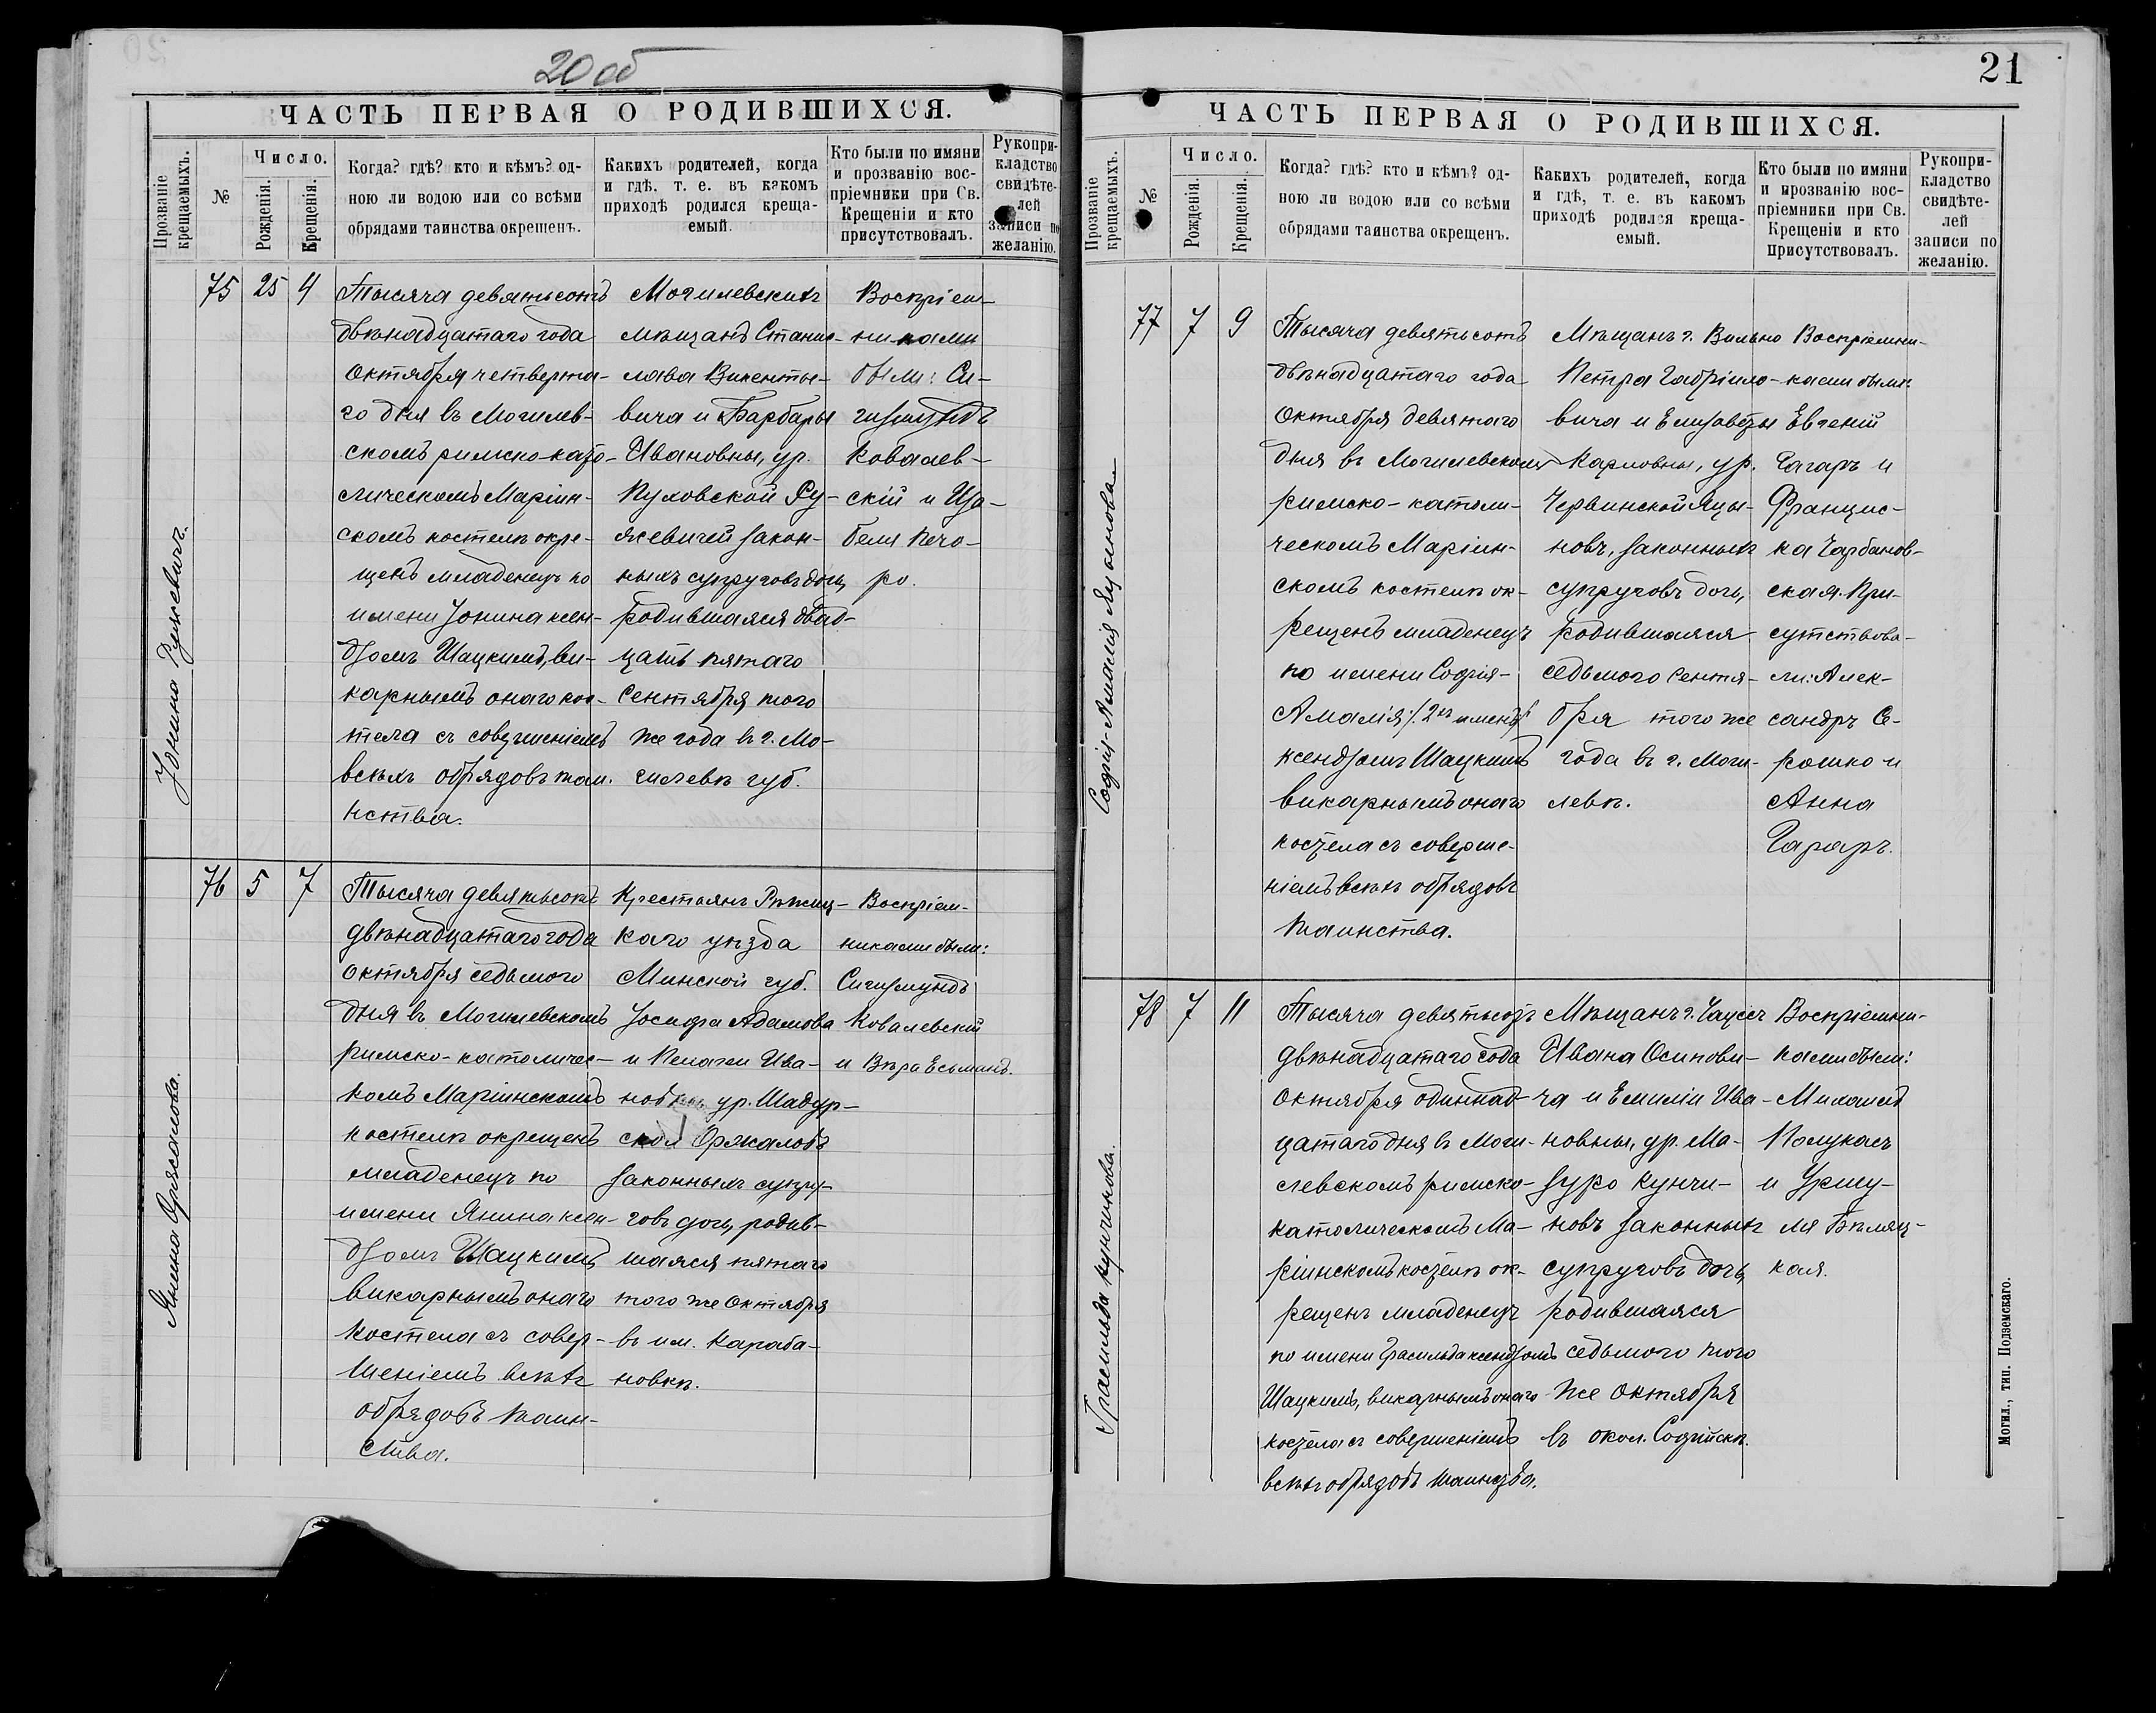 20 об
ЧАСТЬ ПЕРВАЯ О РОДИВШИХСЯ.
Прозваніе крещаемыхъ.
№
Число.
Рожденія.
Крещенія.
Когда? гдѣ? кто и кѣмъ? од-
ною ли водою или со всѣми
обрядами таинства окрещенъ.
Какихъ родителей, когда
и гдѣ, т. е. въ какомъ
приходѣ родился креща-
емый.
Кто были по имяни
и прозванію вос-
пріемники при Св.
Крещеніи и кто
присутствовалъ.
Рукопри-
кладство
свидѣте-
лей
записи по
желанію.
Јонина Ружевичъ.
75 25 4
Тысяча девятьсотъ
двѣнадцатаго года
Октября четверта-
го дня въ Могилев-
скомъ римско-като-
лическомъ Маріин-
скомъ костелѣ окре-
щенъ младенецъ по
имени Јонина ксен-
дзомъ Шацкимъ, ви-
карнымъ онаго кос-
тела съ совершеніемъ
всѣхъ обрядовъ таи-
нства.
Могилевскихъ
мѣщанъ Станис-
лава Викенты-
вича и Барбары
Ивановны, ур.
Пуховской Ру-
жевичей закон-
ныхъ супруговъ дочь,
родившаяся двад-
цать пятаго
Сентября того
же года въ г. Мо-
гилевѣ губ.
Воспріем-
никами
были: Си-
гизмундъ
Ковалев-
скій и Иза-
белла Печо-
ро.
Янина Оржалова.
76 5 7
Тысяча девятьсотъ
двѣнадцатаго года
Октября седьмого
дня въ Могилевскомъ
римско-католичес-
комъ Маріинскомъ
костелѣ окрещенъ
младенецъ по
имени Янина ксен-
дзомъ Шацкимъ
викарнымъ онаго
костела съ совер-
шеніемъ всѣхъ
обрядовъ таин-
ства.
Крестьянъ Рѣжиц-
каго уѣзда
Минской губ.
Јосифа Адамова
и Пелагеи Ива-
новны ур. Шадур-
ской Оржаловъ
законныхъ супру-
говъ дочь, родив-
шаяся пятаго
того же Октября
въ им. Караба-
новкѣ.
Воспріем-
никами были:
Сигизмундъ
Ковалевскій
и Вѣра Есьмандъ.
21
ЧАСТЬ ПЕРВАЯ О РОДИВШИХСЯ.
Прозваніе крещаемыхъ.
№
Число.
Рожденія.
Крещенія.
Когда? гдѣ? кто и кѣмъ? од-
ною ли водою или со всѣми
обрядами таинства окрещенъ.
Какихъ родителей, когда
и гдѣ, т. е. въ какомъ
приходѣ родился креща-
емый.
Кто были по имяни
и прозванію вос-
пріемники при Св.
Крещеніи и кто
присутствовалъ.
Рукопри-
кладство
свидѣте-
лей
записи по
желанію.
Софія-Амалія Яцынова
77 7 9
Тысяча девятьсотъ
двѣнадцатаго года
Октября девятаго
дня въ Могилевскомъ
римско-католи-
ческомъ Маріин-
скомъ костелѣ ок-
рещенъ младенецъ
по имени Софія-
Амалія /:2хъ именъ:/
ксендзомъ Шацкимъ
викарнымъ онаго
костела съ соверше-
ніемъ всѣхъ обрядовъ
таинства.
Мѣщанъ г. Вильно
Петра Габріило-
вича и Елизаветы
Карловны, ур.
Червинской Яцы-
новъ, законныхъ
супруговъ дочь,
родившаяся
седьмого Сентя-
бря того же
года въ г. Моги-
левѣ.
Воспріемни-
ками были:
Евгеній
Гагаръ и
Францис-
ка Чарбанов-
ская. При-
сутствова-
ли: Алек-
сандръ Се-
рошко и
Анна
Гагаръ.
Грасильда Кунчинова.
78 7 11
Тысяча девятьсотъ
двѣнадцатаго года
Октября одиннад-
цатаго дня въ Моги-
левскомъ римско-
католическомъ Ма-
ріинскомъ костелѣ ок-
рещенъ младенецъ
по имени Грасильда ксендзомъ
Шацкимъ, викарнымъ онаго
костела съ совершеніемъ
всѣхъ обрядовъ таинства.
Мѣщанъ г. Чаусъ
Ивана Осипови-
ча и Емиліи Ива-
новны, ур. Ма-
зуро Кунчи-
новъ законныхъ
супруговъ дочь,
родившаяся
седьмого того
же Октября
въ окол. Софійскѣ.
Воспріемни-
ками были:
Михаилъ
Полукасъ
и Уршу-
ля Бѣляц-
кая.
Могил., тип. Подземскаго.